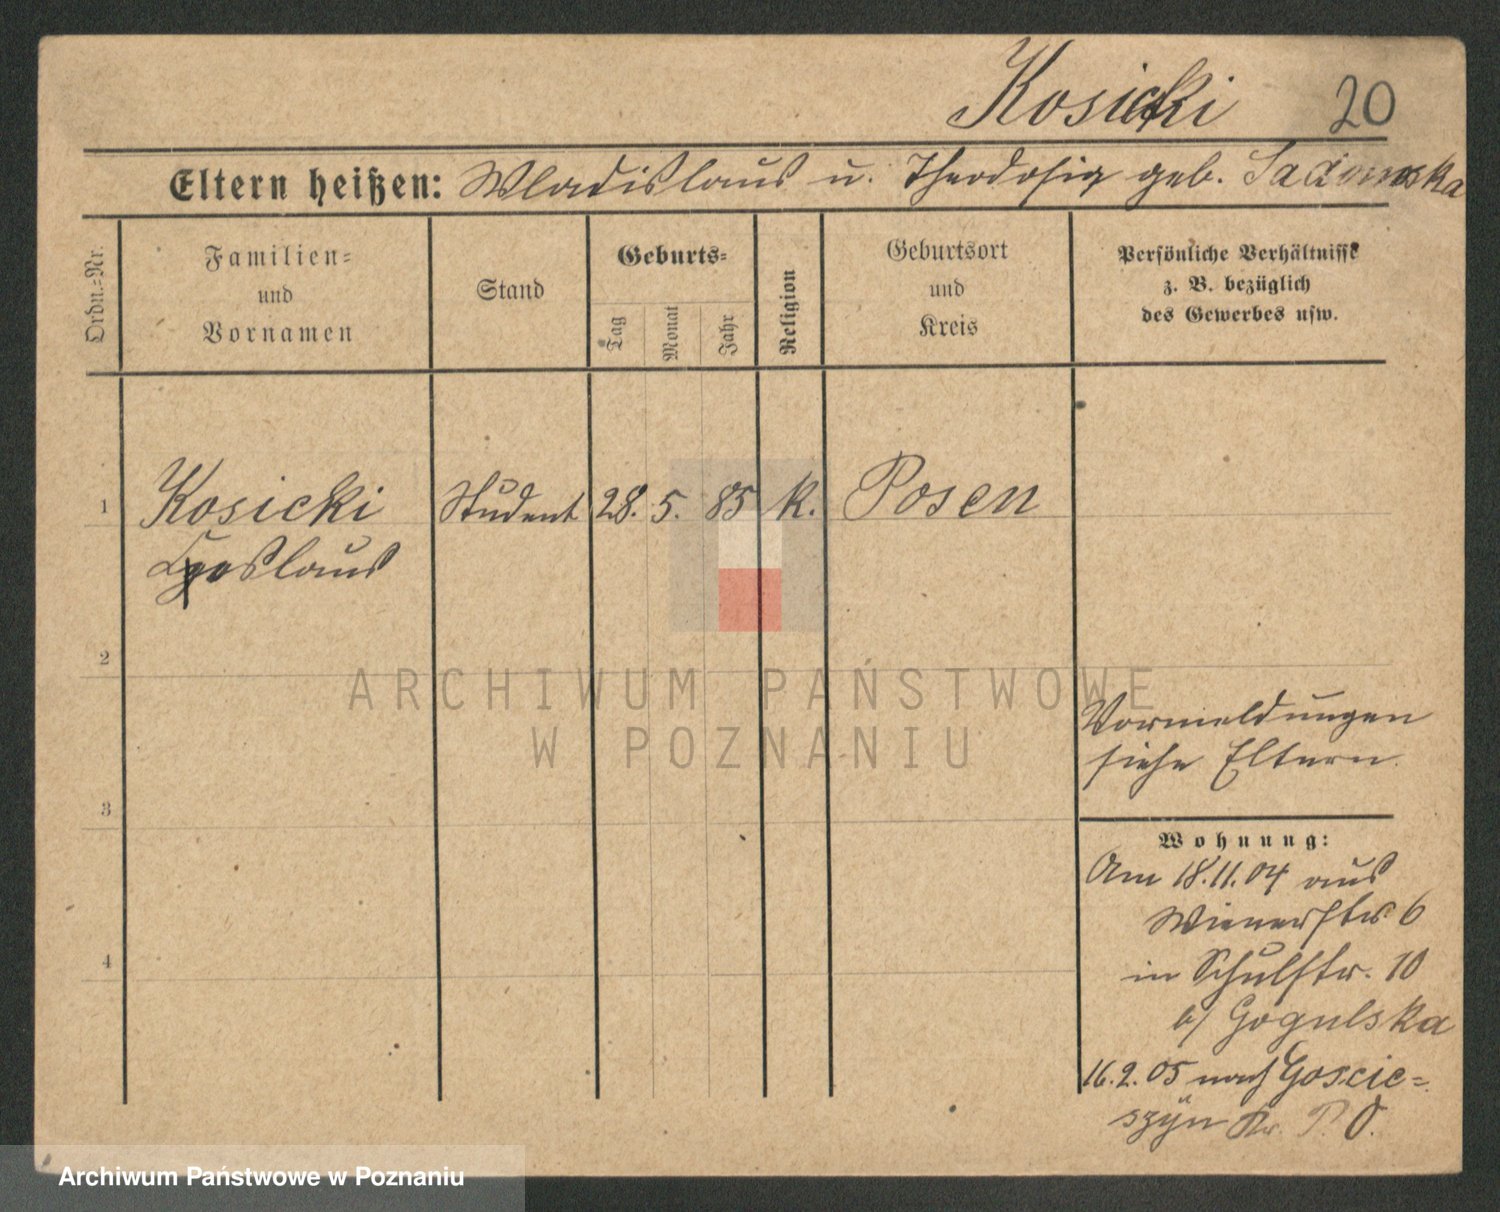 Kosicki 20
Eltern heißen: Wladislaus u. Theodosia geb. Sadowska
Ordn.-Nr.
Familien-
und
Vornamen
Stand
Geburts-
Tag
Monat
Jahr
Religion
Geburtsort
und
Kreis
Persönliche Verhältnisse
z. B. bezüglich
des Gewerbes usw.
1 Kosicki Student 28. 5. 85 k. Posen
2
ARCHIWUM PAŃSTWOWE
W POZNANIU
Vormeldungen
siehe Eltern.
3
Wohnung:
Am 18.11.04 aus
Wienerstr 6
4
in Schulstr. 10
b/ Gogulska
16.2.05 nach Goscie=
szyn Kr. P. O.
Archiwum Państwowe w Poznaniu